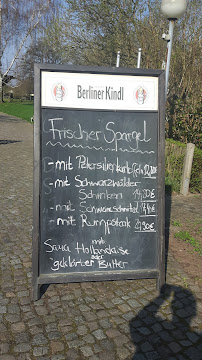 Berliner Kindl
Frischer Spargel
- mit Petersilienkartoffeln
- mit Schwarzwälder
Schinken
- mit Schweineschnitzel
- mit Rumpsteak
mit
Sauce Hollandaise
oder
geklärter Butter